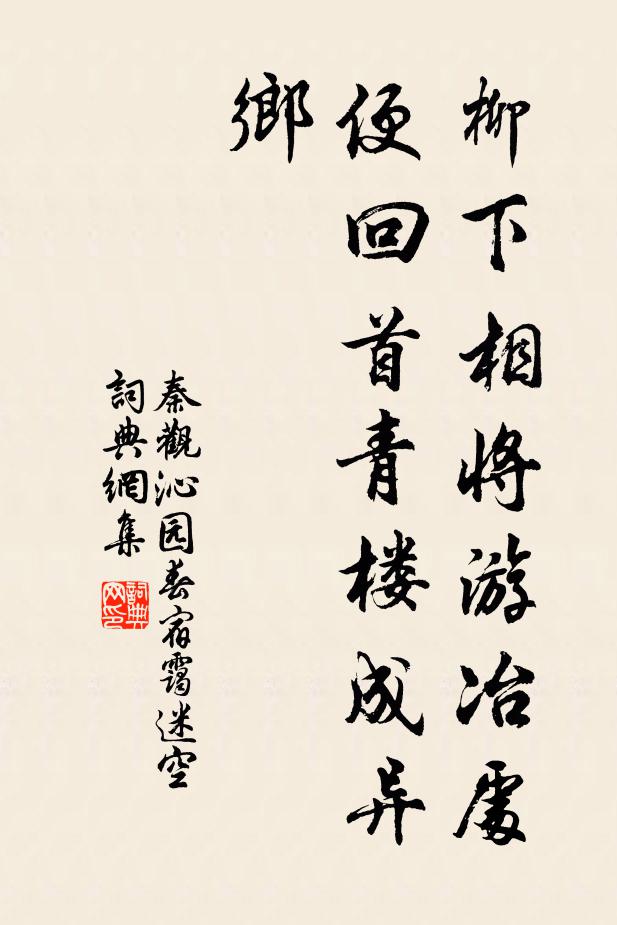 柳下相将游冶處
便回首青楼成异
鄉
秦觀沁园春宿靄迷空
詞典網集
詞典
网印